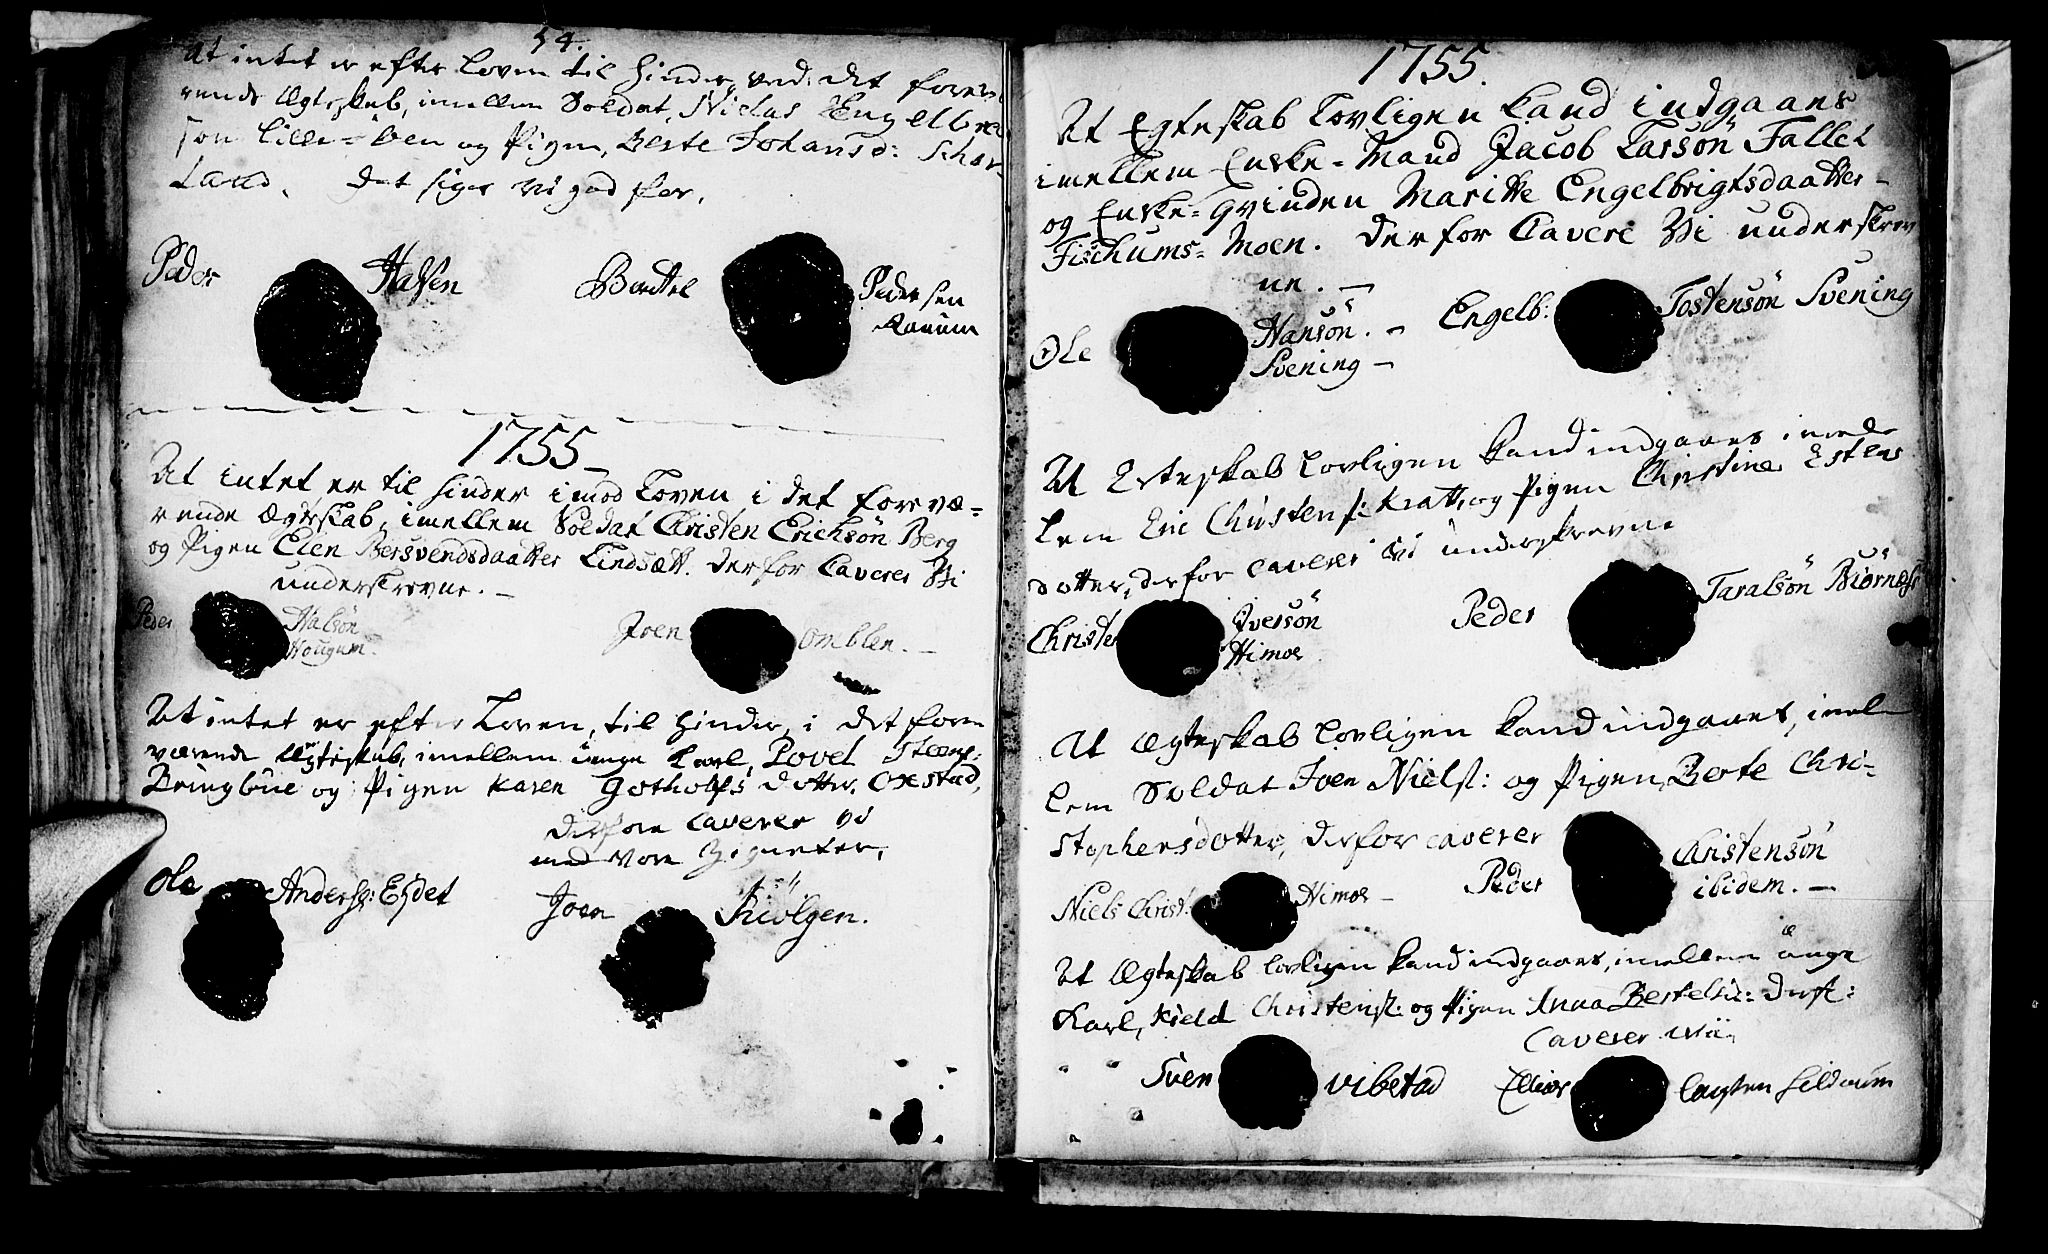 54.
At intet er efter Loven til Hinder, ved det forevæ
rende Ægteskab, imellem Soldat, Nielas Engelbrea
son Lille=öen og Pigen, Berte Johansd: Schor-
Land. Det siger vi god for.
Peder Halsen Barttel Pedersen
1755
At intet er til hinder imod Loven i det forvæ=
rende Ægteskab, imellem Soldat Christen Erichsön Berg
og Pigen Elen Bersvendsdaatter Lindsætt. Derfor Caverer Vi
underskrevne. -
Peder Halsön Joen Omblen. -
Hougum.
At intet er efter Loven, til Hinder, i det fore
værende Ægteskab, imellem unge Karl, Povel Steens:
Bringlüe og Pigen Karen Gotholfs dotter, Oxstad,
Derfore Caverer vi
med vore Zigneter,
Ole Anders: Ejdet Joen Kiölgen.
1755.
At Egteskab Lovligen kand indgaaes
imellem Enke-Mand Jacob Larsön Falled
og Enke=Qvinden Maritte Engelbrigtsdaatter-
Fischums=Moen. Derfor Cavere Vi underskrev
ne. -
Ole Hansön. - Engelb: Tostensön Svening
Svening -
At Ecteskab Lovligen kand indgaaes imed
lem Eric Christens: Kratt, og Pigen Christine Estens
dotter, derfor caverer vi underskrevne
Christen Iversön Peder Taralsön Biörnaß
Himoe
At Ægteskab Lovligen kand indgaaes, imel
lem Soldat Joen Niels: og Pigen Berte Chri-
stophersdotter, derfor caverer
Niels Christ: Himoe - Peder Christensön
ibidem. -
At Ægteskab Lovligen kand indgaaes, imellem unge
Karl, Kield Christens: og Pigen Anna Bertelsd: Derf:
Caverer wii
Sven Vibstad Ellias Carsten Sildnüm